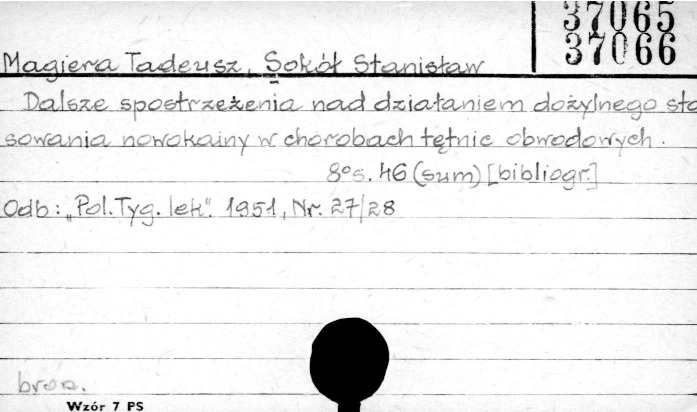 37065
37066
Magiera Tadeusz, Sokół Stanisław
Dalsze spostrzeżenia nad działaniem dożylnego sto
sowania nowokainy w chorobach tętnic obwodowych.
8° s. 46 (sum) [bibliogr.]
Odb: "Pol. Tyg. lek". 1951, Nr. 27/28
brosz.
Wzór 7 PS